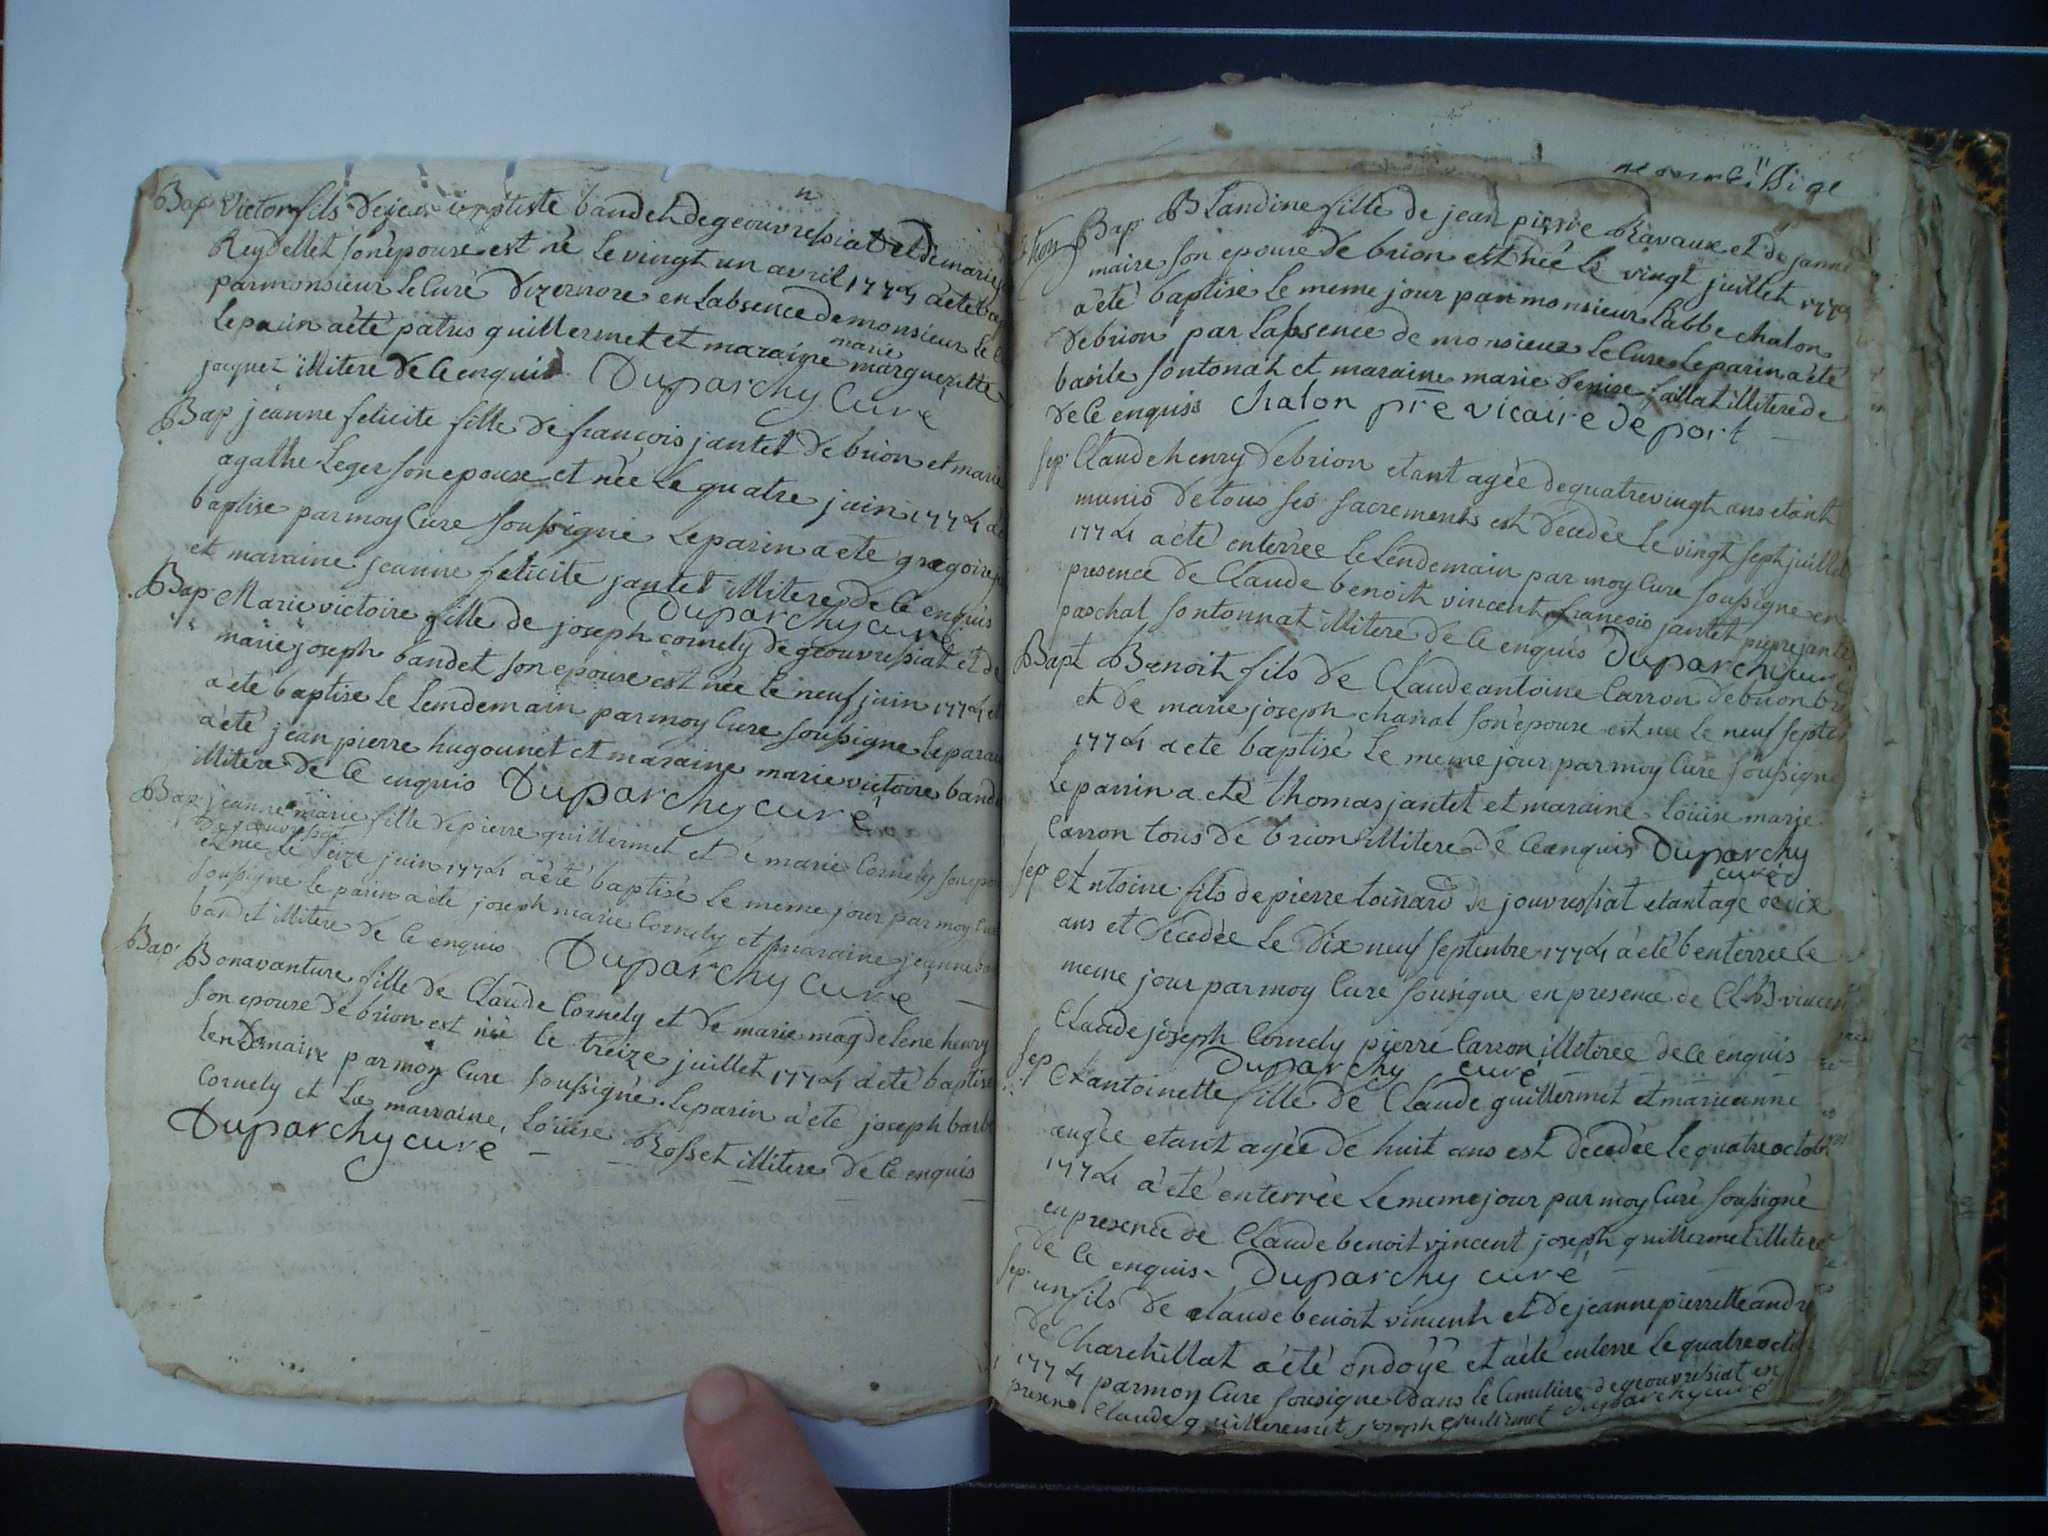 Bap victor fils de jean baptiste bandet de geouvressiat et de marie
Reydellet son epouse est né le vingt un avril 1774 a eté
par monsieur le Curé dizernore en labsence de monsieur le
le parin a été patris guillermet et maraine marie marguerite
jaquet illitere de ce enquis Duparchy curé
Bap jeanne felicite fille de francois jantet de brion et marie
agathe Leger son epouse et née le quatre juin 1774 a
baptise par moy Cure soussigné le parin a ete gregoire
et maraine jeanne felicite jantet illitere de ce enquis
Duparchy curé
Bap Marie victoire fille de joseph cornely de geouvressiat et de
marie joseph bandet son epouse est née le neuf juin 1774 et
a été baptise le lendemain par moy Cure soussigne le parain
a été jean pierre hugounet et maraine marie victoire band
illitere de ce enquis Duparchy curé
Bap jeanne marie fille de pierre guillermet et de marie Cornely son epou
de jouvressat
et née le seize juin 1774 a été baptisé le meme jour par moy Cure
soussigne le parin a été joseph marie Cornely et maraine jeanne
bandet illitere de ce enquis Duparchy curé
Bap Bonavanture fille de Claude Cornely et de marie magdelene henry
son epouse de brion est née le treize juillet 1774 a été baptise
lendemain par moy Cure soussigné le parin a ete joseph
Cornely et la marraine Loüise Rosset illitere de ce enquis
Duparchy curé
Bap Blandine fille de jean pierre Ravaux et de janne
maire son epouse de brion est née le vingt juillet 1774
a été baptisé le meme jour par monsieur labbe chalon
de brion par labsence de monsieur le Cure le parin a été
basile sontonat et maraine marie denise fallat illitere de
de ce enquis chalon pre vicaire de port
sep Claude henry de brion etant agée de quatre vingt ans etant
munis de tous ses sacrements est decedée le vingt sept juillet
1774 a été enterrée le lendemain par moy Cure soussigne en
presence de Claude benoit vincent francois jantet pierre jante
paschal sontonnat illitere de ce enquis Duparchy curé
Bapt Benoit fils de Claude antoine Carron de brion
et de marie joseph chanal son epouse est née le neuf septe
1774 a eté baptisé le meme jour par moy Cure soussigne
le parrin a eté thomas jantet et maraine loüise marie
Carron tous de brion illitere de ce enquis Duparchy
curé
sep Antoine fils de pierre toinard de jouvressiat etant age de dix
ans et decedée le dix neuf septembre 1774 a été enterrée le
meme jour par moy Cure sousigne en presence de Cl B vincen
Claude joseph Cornely pierre Carron illiteree de ce enquis
Duparchy curé
Sep antoinette fille de Claude guillermet et marie anne
augée etant agée de huit ans est decedée le quatre octobre
1774 a été enterrée le meme jour par moy Curé soussigné
en presence de Claude benoit vincent joseph guillermet illitere
de ce enquis Duparchy curé
sep un fils de claude benoit vincent et de jeanne pierrette andre
de Charchillat a été ondoyé et a été enterre le quatre octo
1774 par moy Cure sousigne dans le Cimetiere de geouvressiat en
presence Claude guillermet joseph guillermet duparchy curé